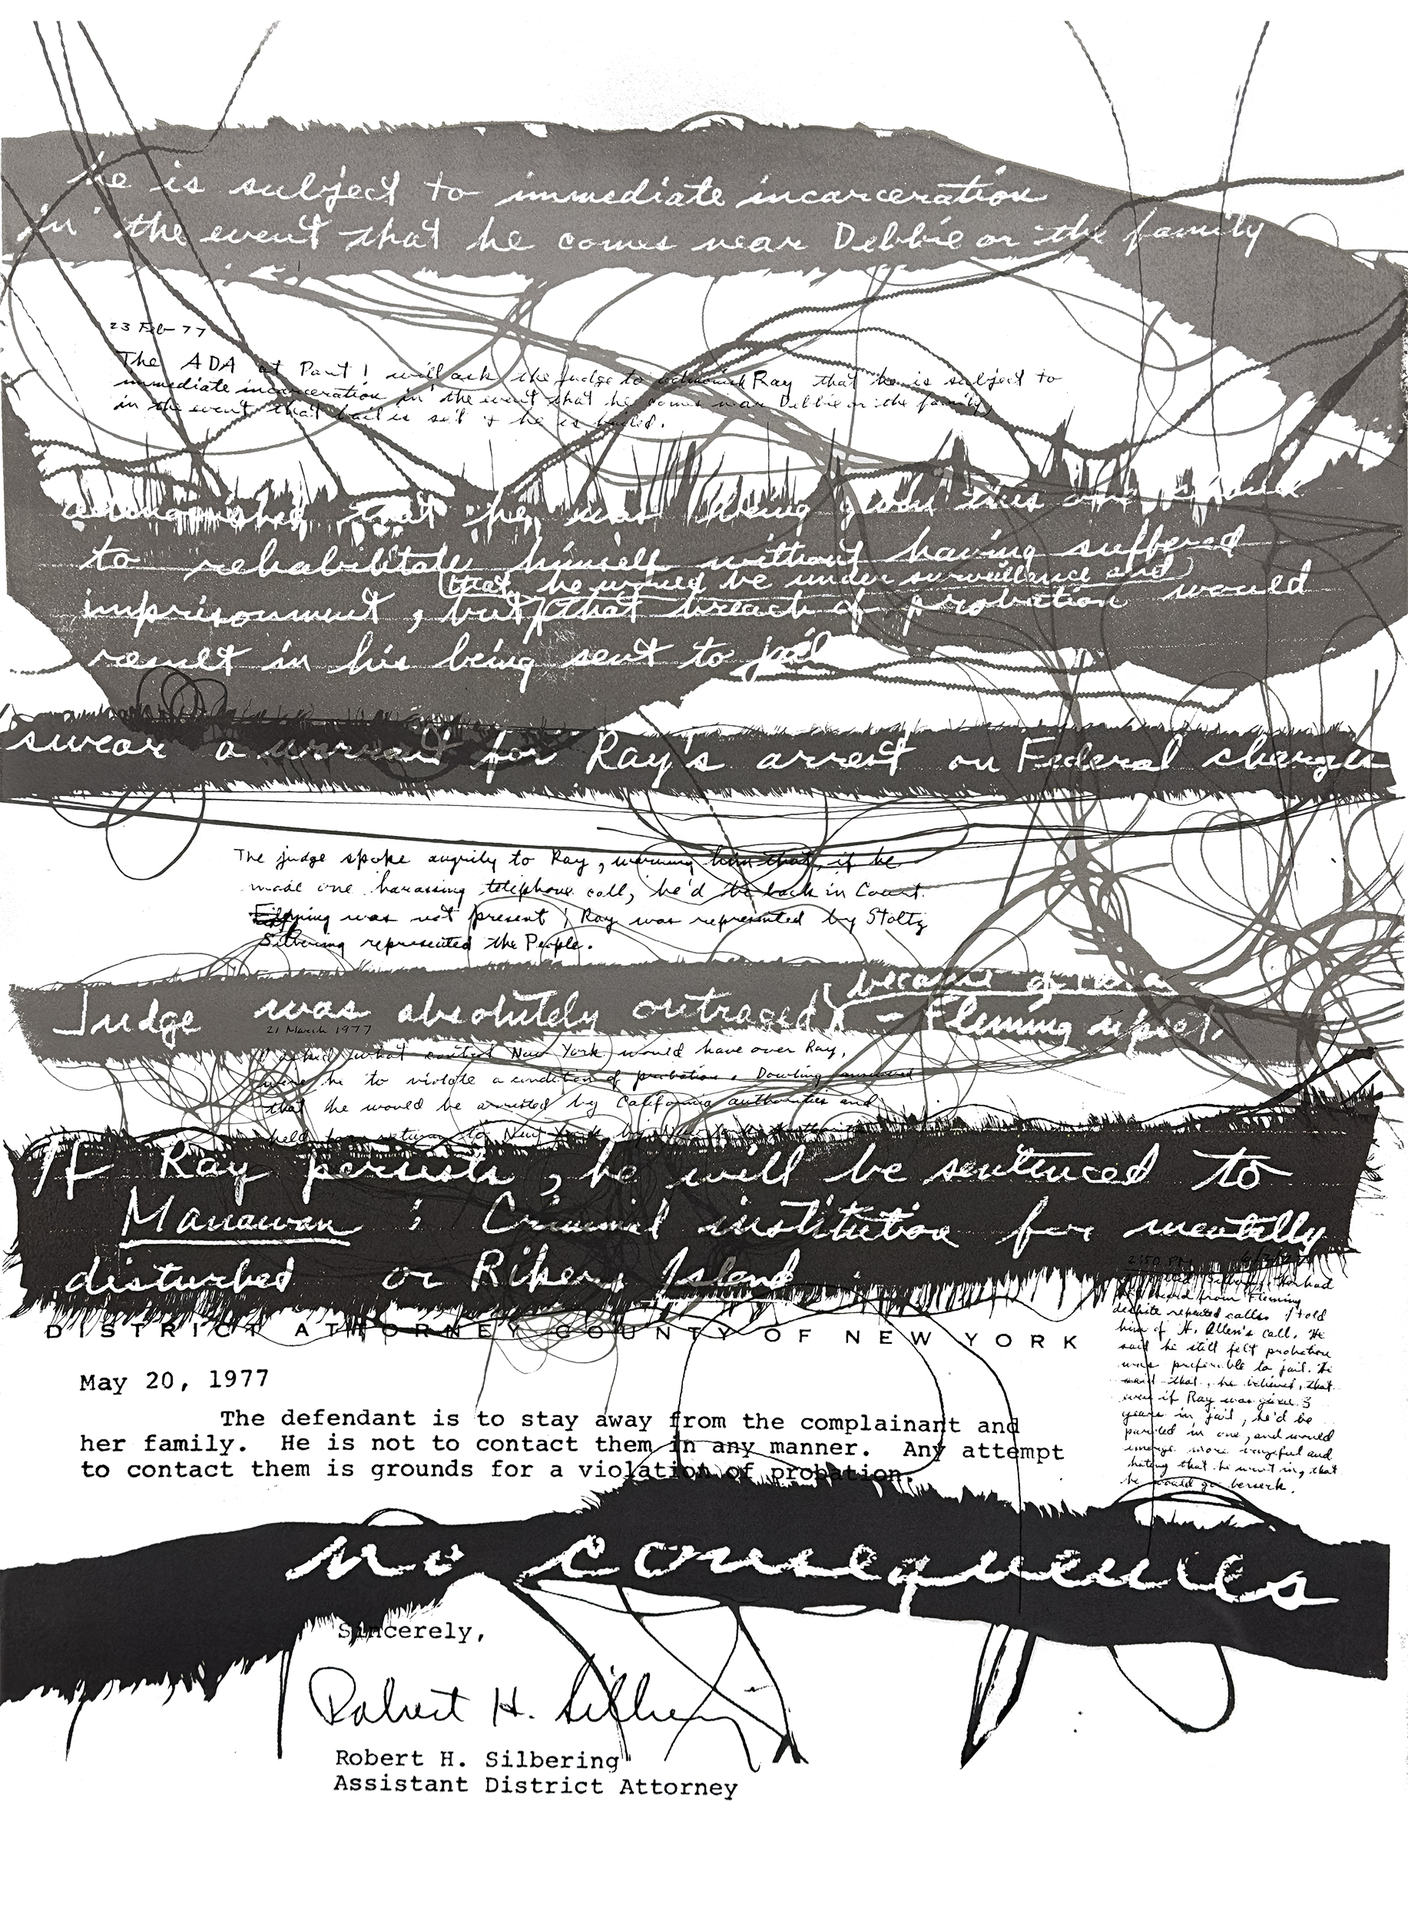 he is subject to immediate incarceration
in the event that he comes near Debbie or the family
23 Feb 77
The ADA at Part 1 will ask the judge to admonish Ray that he is subject to
immediate incarceration in the event that he comes near Debbie or the family,
in the event that bail is set & he is bailed.
that he was being given this one chance
to rehabilitate himself without having suffered
(that he would be under surveillance and)
imprisonment, but that breach of probation would
result in his being sent to jail
swear a warrant for Ray's arrest on Federal charges
The judge spoke angrily to Ray, warning him that, if he
made one harassing telephone call, he'd be back in Court.
was not present; Ray was represented by Stoltz
Silbering represented the People.
became
Judge was absolutely outraged - Fleming upset
21 March 1977
I asked what control New York would have over Ray,
were he to violate a condition of probation. Dowling answered
that he would be arrested by California authorities and
held for return to New York by New York authorities
If Ray persists, he will be sentenced to
Manawan: Criminal institution for mentally
disturbed or Riker, Island
2:50 PM
had
heard from Fleming
despite repeated calls. I told
him of H. Allen's call. He
said he still felt probation
was preferable to jail. He
said that, he believed, that
even if Ray was given 3
years in jail, he'd be
paroled in one, and would
emerge more vengeful and
hating that he went in, that
he could go berserk.
DISTRICT ATTORNEY COUNTY OF NEW YORK
May 20, 1977
The defendant is to stay away from the complainant and
her family. He is not to contact them in any manner. Any attempt
to contact them is grounds for a violation of probation.
no consequences
Sincerely,
Robert H. Silbering
Robert H. Silbering
Assistant District Attorney